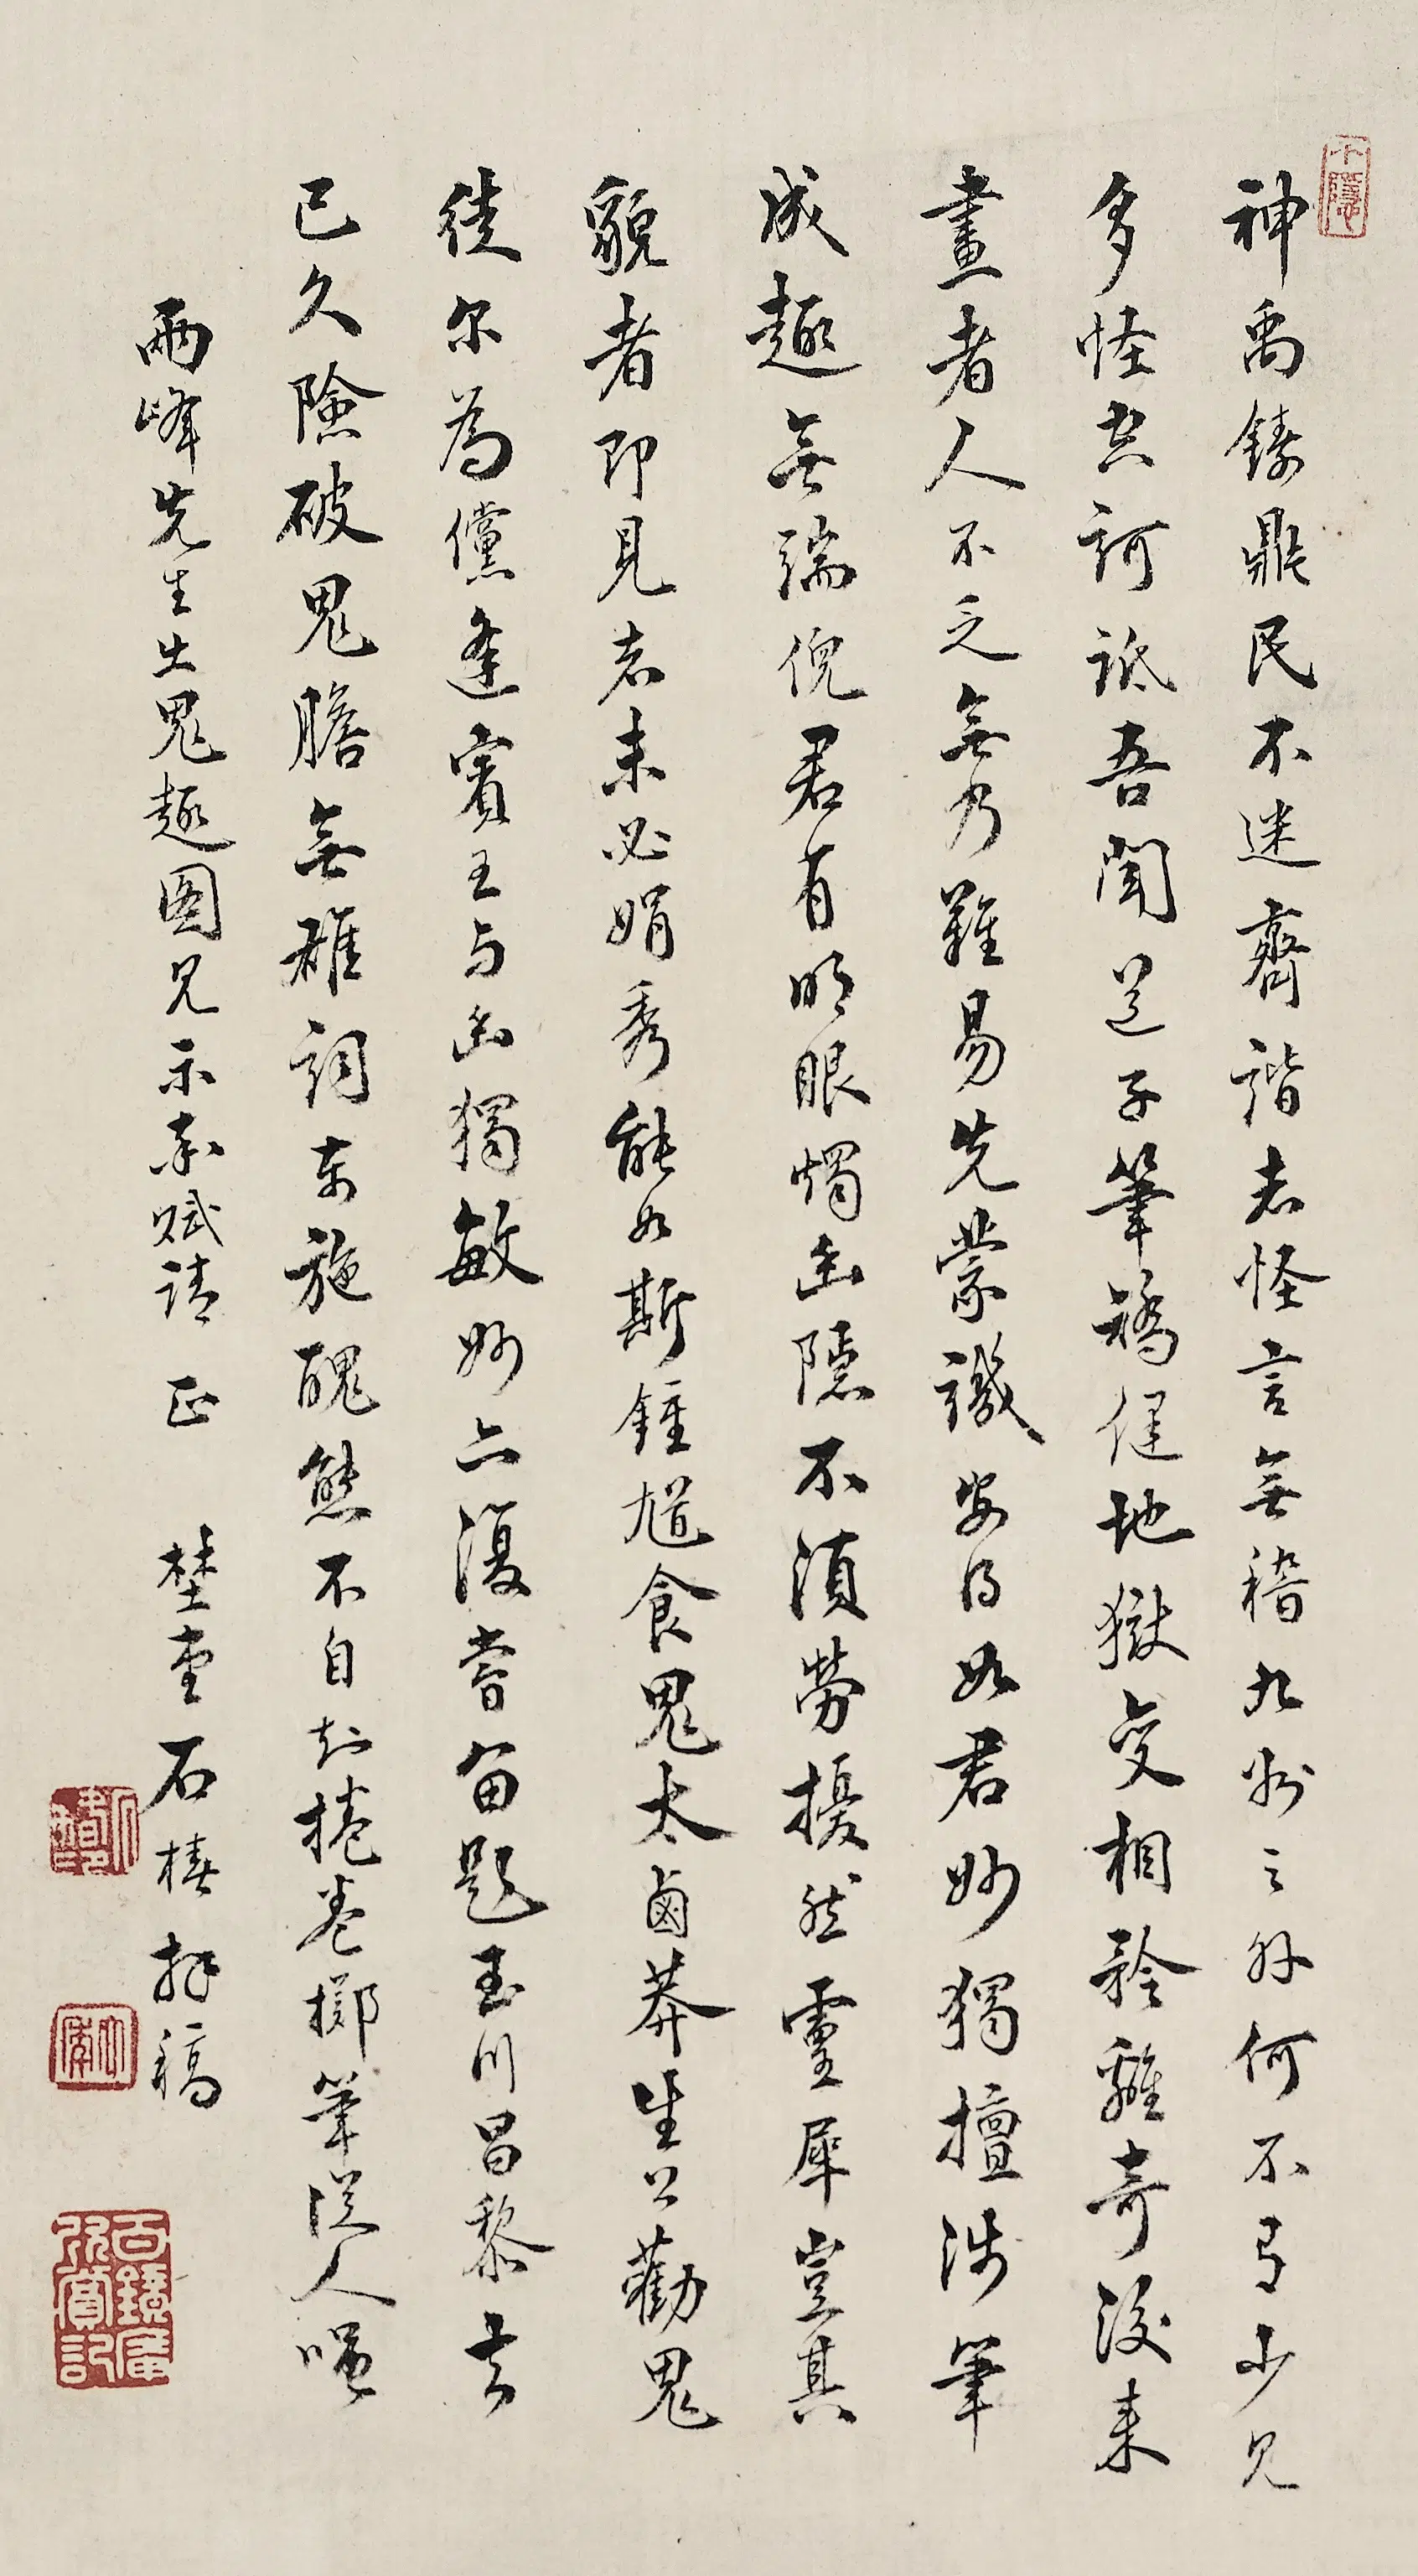 神禹鑄鼎民不迷齊諧志怪言無稽九州之外何不有少見
多怪空訶詆吾聞道子筆矯健地獄變相矜離奇後來
畫者人不乏無乃難易先蒙譏安得如君妙獨擅涉筆
成趣無端倪君有明眼燭幽隱不須勞擾然靈犀豈其
貌者即見者未必娟秀能如斯鍾馗食鬼太鹵莽生公勸鬼
徒尔為儻逢賓王与幽獨敏妙六復嘗留題玉川昌黎去
已久險破鬼膽無雄詞东施醜態不自知捲卷擲筆從人嗤
兩峰先生出鬼趣图見示索賦請 正 埜堂石椿拜稿